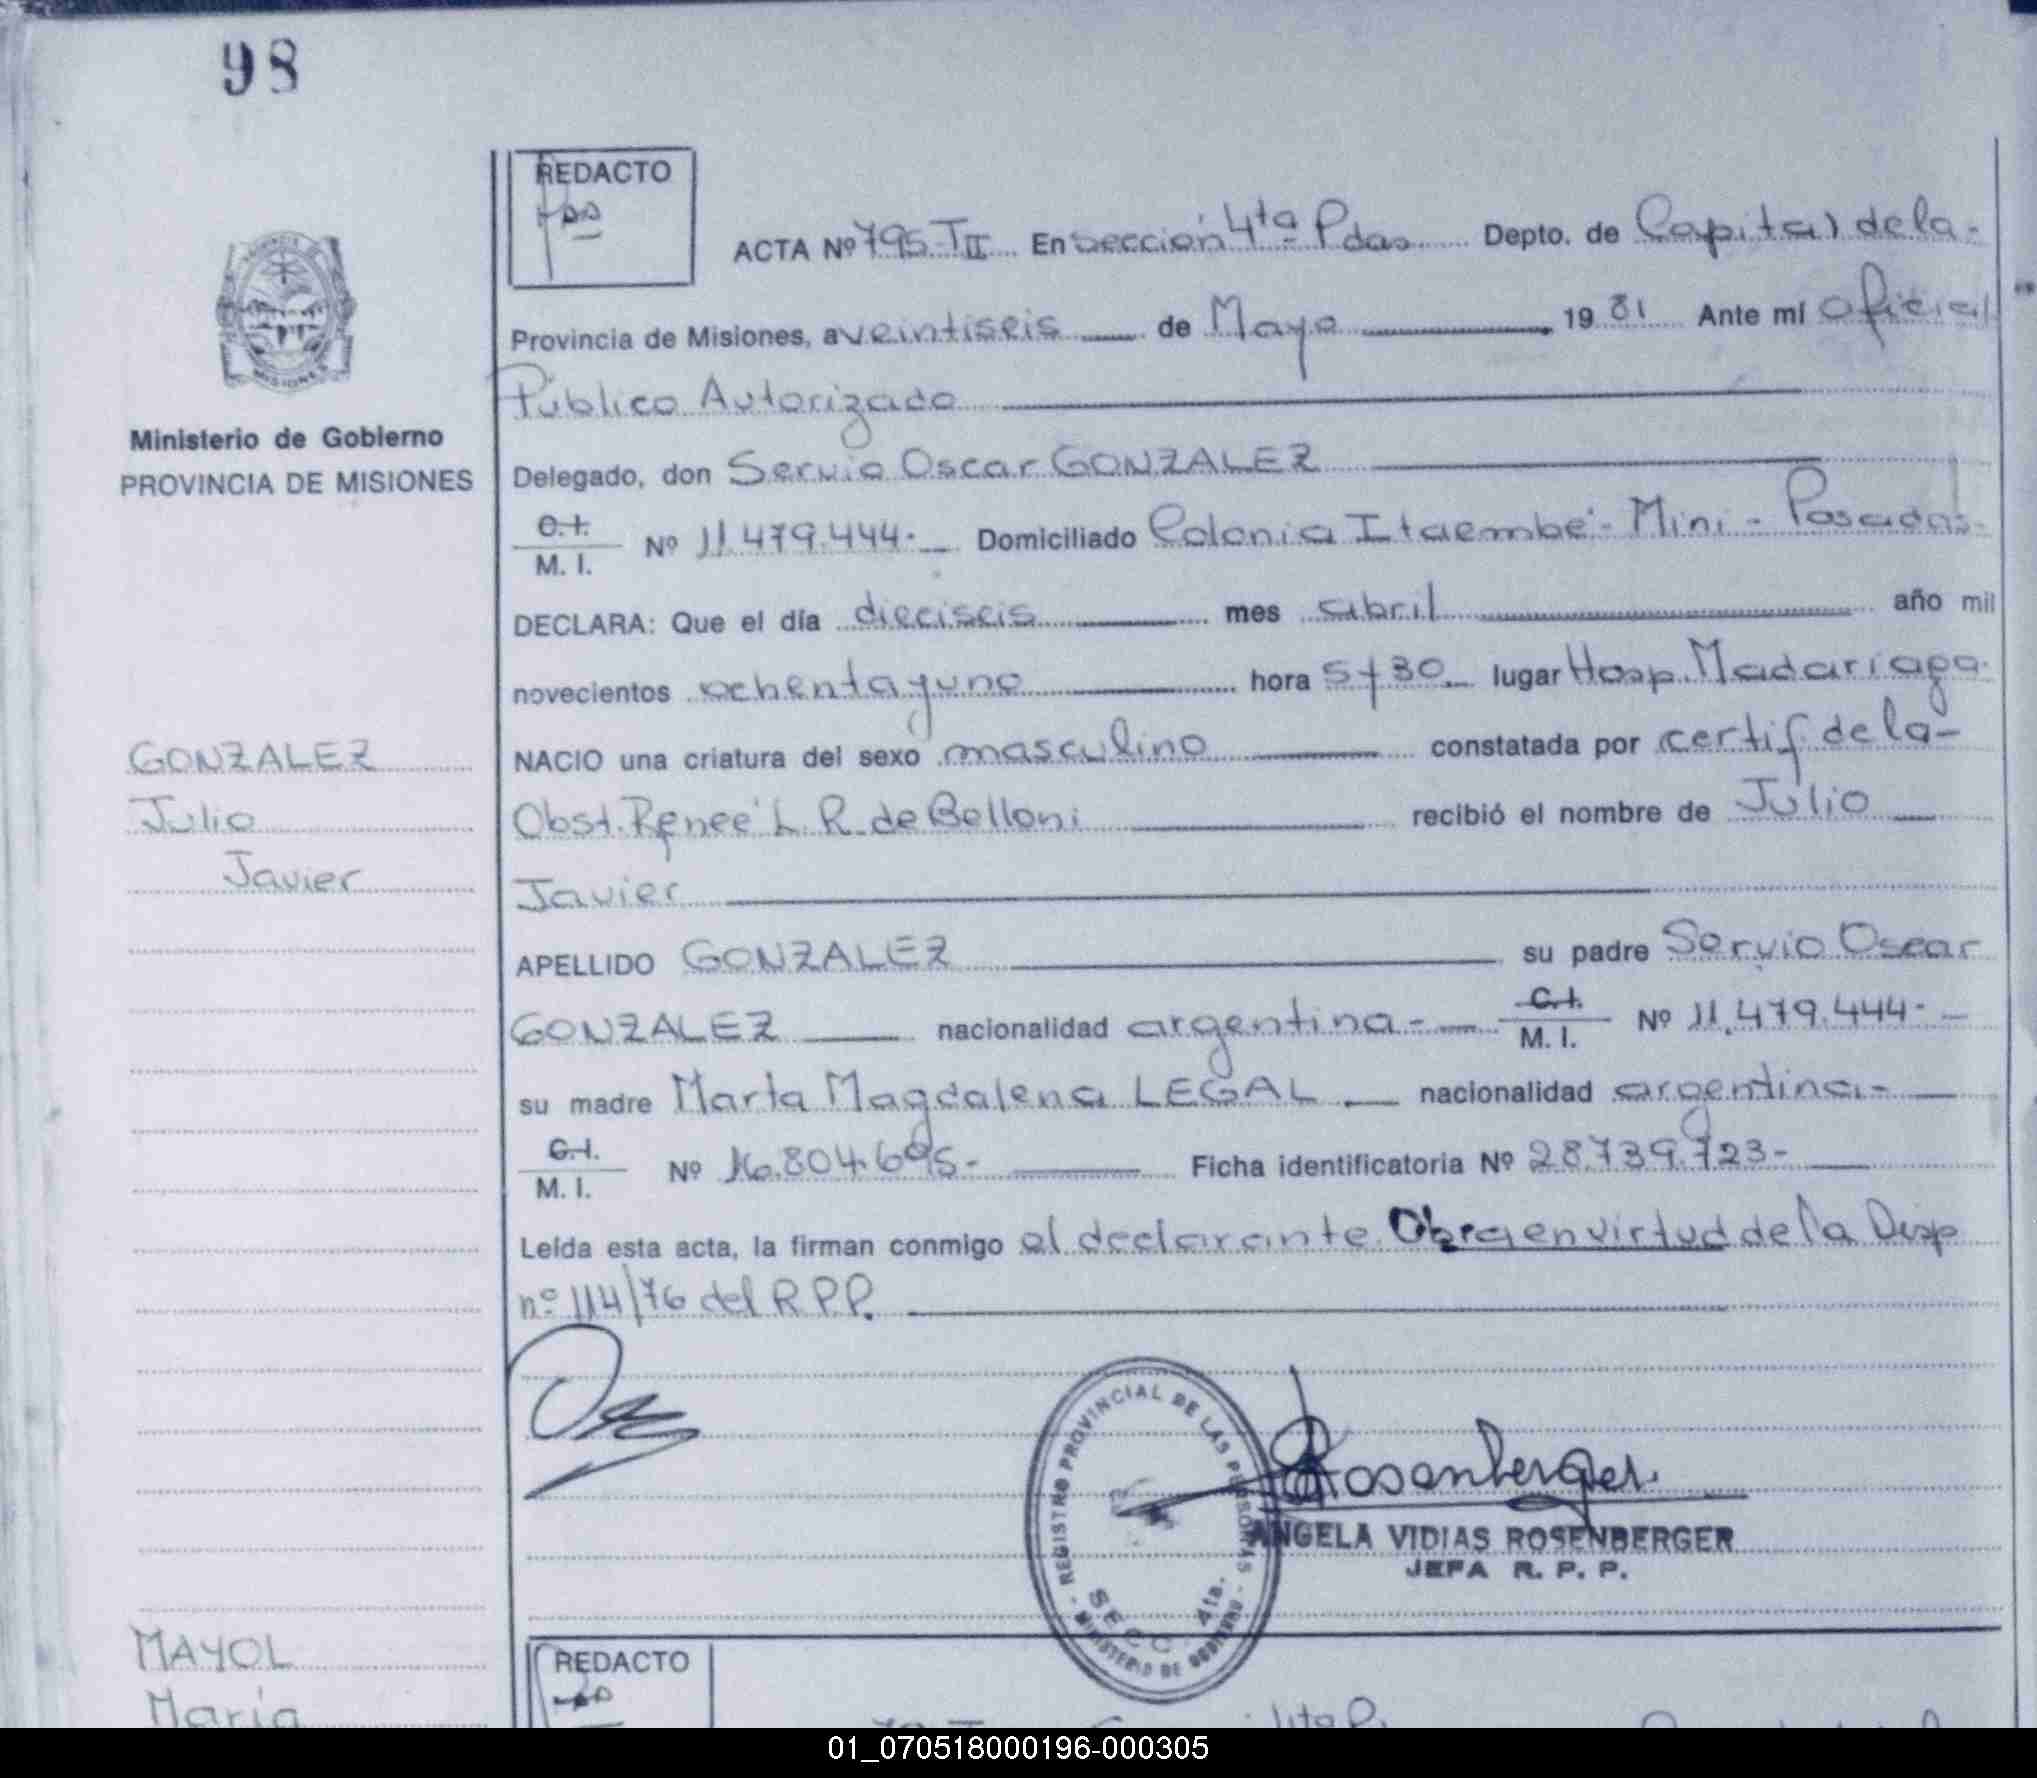 98
REDACTO
ACTA Nº 795-TII En sección 4ta Pdas Depto. de Capital de la-
Provincia de Misiones, a veintiseis de Mayo 1981 Ante mí Oficial
Público Autorizado
Ministerio de Gobierno
PROVINCIA DE MISIONES
Delegado, don Servio Oscar GONZALEZ
C.I.
M. I. Nº 11.479.444.- Domiciliado Colonia Itaembé-Mini-Posadas-
DECLARA: Que el día dieciseis mes abril año mil
novecientos ochenta y uno hora 5 y 30 lugar Hosp. Madariaga.
GONZALEZ
Julio
Javier
NACIO una criatura del sexo masculino constatada por certif de la-
Obst. Reneé L. R. de Belloni recibió el nombre de Julio
Javier
APELLIDO GONZALEZ su padre Servio Oscar
GONZALEZ nacionalidad argentina- C.I.
M. I. Nº 11.479.444.-
su madre Marta Magdalena LEGAL nacionalidad argentina-
C.I.
M. I. Nº 16.804.695- Ficha identificatoria Nº 28.739.723-
Leída esta acta, la firman conmigo el declarante. Obra en virtud de la Disp
nº 114/76 del R.P.P.
REGISTRO PROVINCIAL DE LAS PERSONAS
SECC. 4ta.
MINISTERIO DE GOBIERNO
Rosenberger
ANGELA VIDIAS ROSENBERGER
JEFA R. P. P.
MAYOL
María
REDACTO
01_070518000196-000305